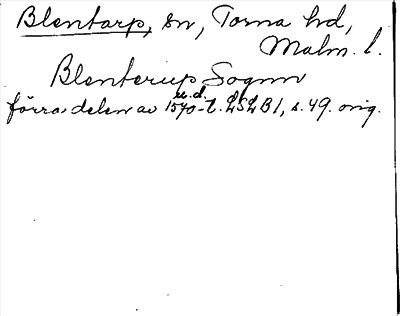 Blentarp, sn, Torna hd,
Malm. l.
Blenterup Sognn
u.d.
förra delen av 1570-t. LSLB1, s. 49. orig.